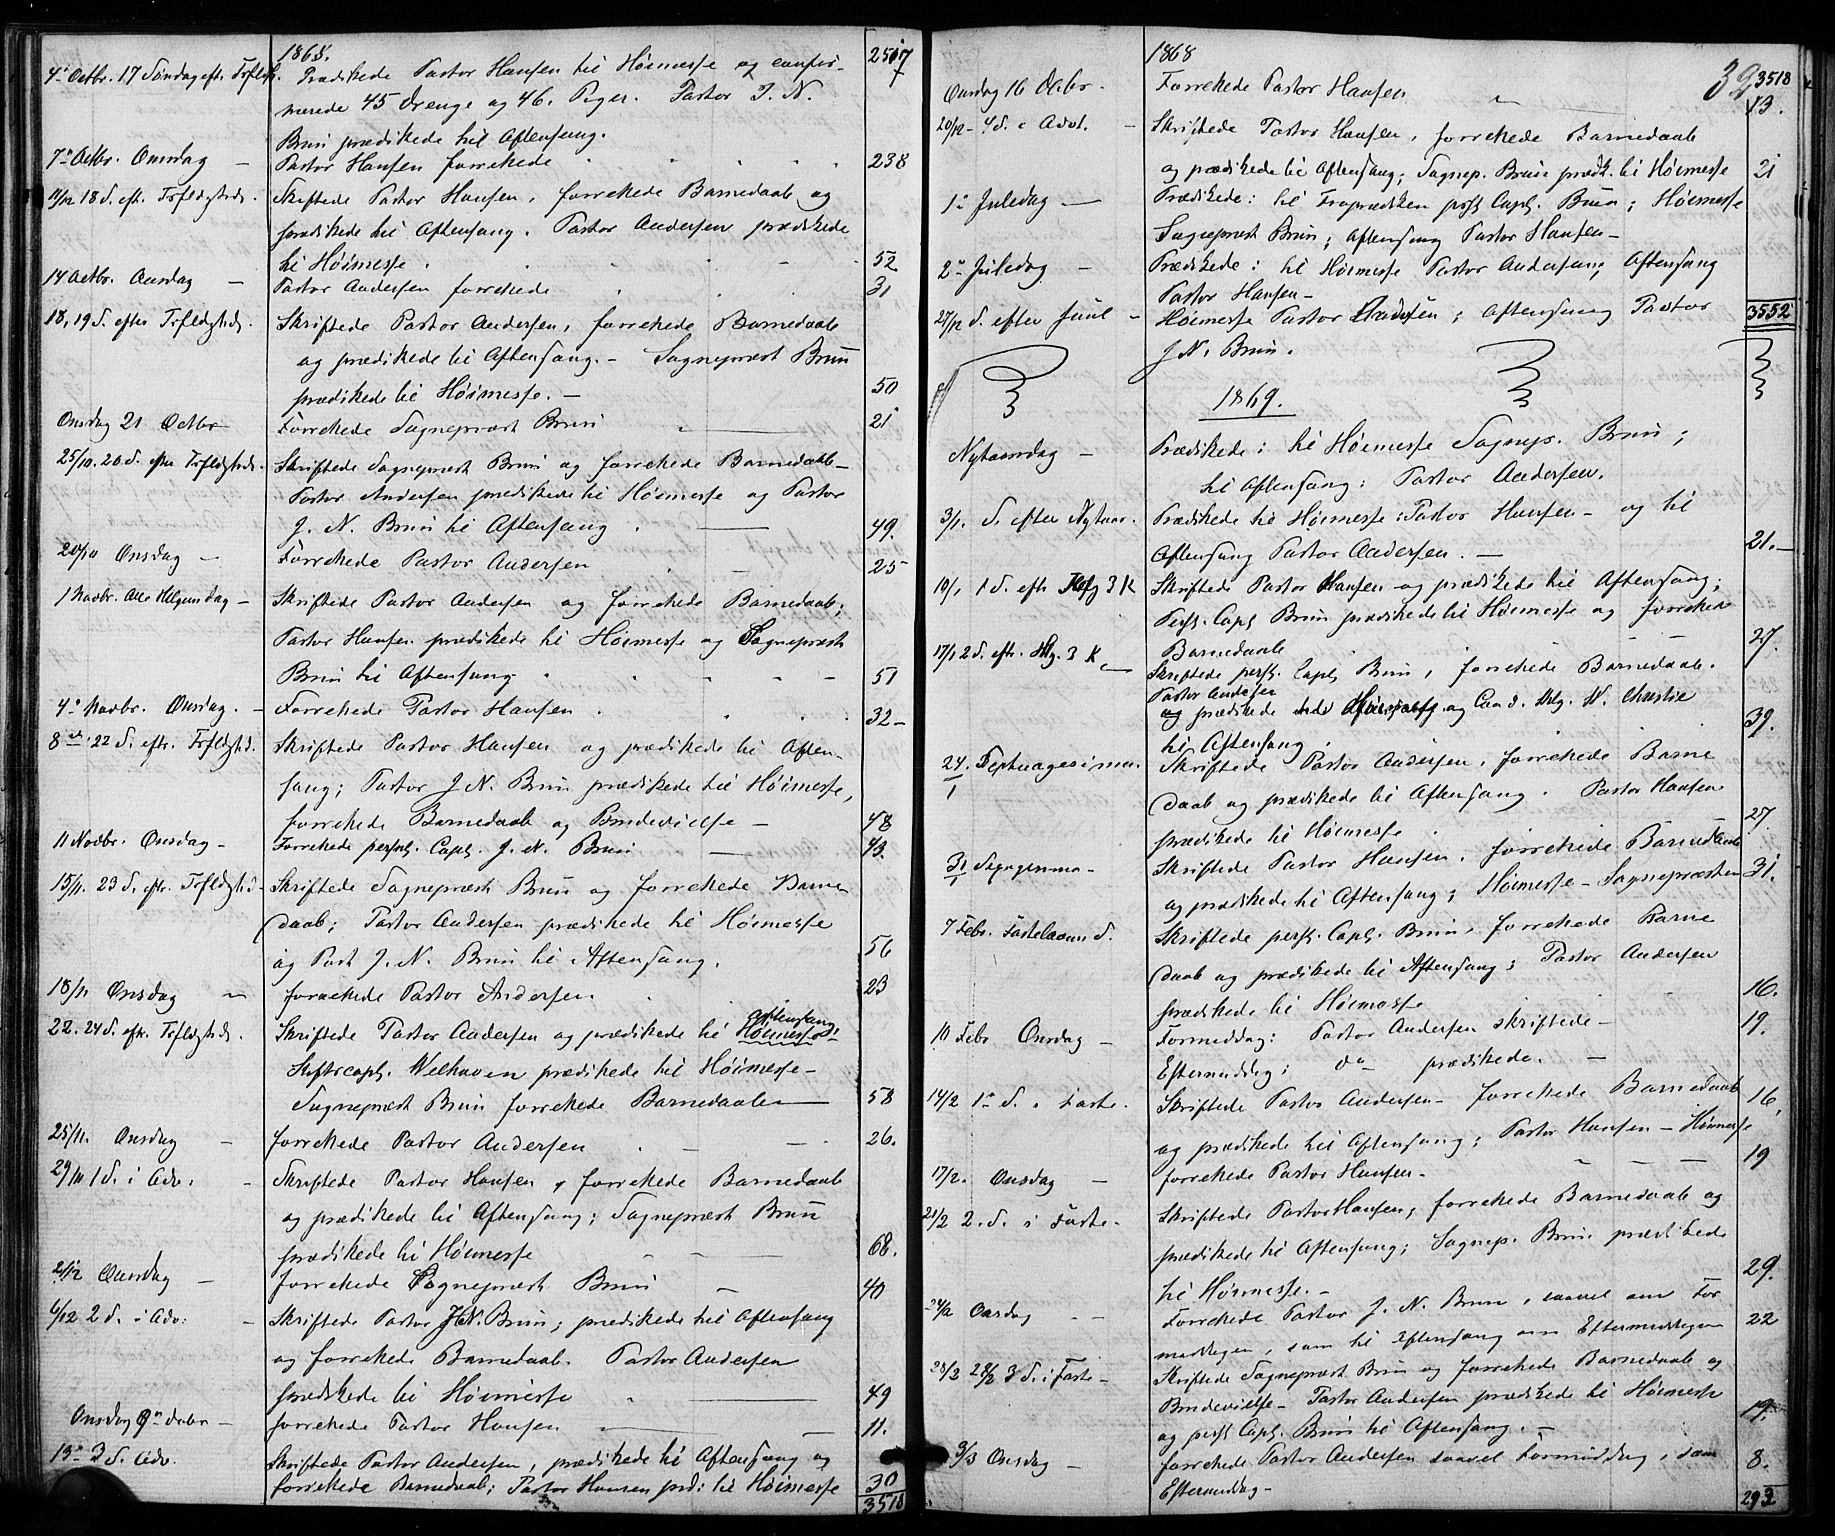 1868.
2517
4de Octbr. 17 Søndag eftr. Trfldh. Prædikede Pastor Hansen til Høimesse og confir-
merede 45 Drenge og 46. Piger. Pastor J. N.
Brun prædikede til Aftensang.
7de Octbr. Onsdag — Pastor Hansen forrettede 238
11/10 18 S. eft. Trfldgheds. Skriftede Pastor Hansen, forrettede Barnedaab og
prædikede til Aftensang. Pastor Andersen prædikede
til Høimesse. 52
14 Octbr. Onsdag — Pastor Andersen forrettede 31
18, 19 S. efter Trfldgheds. Skriftede Pastor Andersen, forrettede Barnedaab
og prædikede til Aftensang. — Sognepræst Brun
prædikede til Høimesse. — 50
Onsdag 21 Octbr Forrettede Sognepræst Brun 21
25/10. 20 S. efter Trfldgheds. Skriftede Sognepræst Brun og forrettede Barnedaab —
Pastor Andersen prædikede til Høimesse og Pastor
J. N. Brun til Aftensang. 49.
Onsdag — Forrettede Pastor Andersen 25
1 Novbr. Alle Helgensdag — Skriftede Pastor Andersen og forrettede Barnedaab;
Pastor Hansen prædikede til Høimesse og Sognepræst
Brun til Aftensang. 51
4de Novbr. Onsdag. — Forrettede Pastor Hansen. 32 —
8de. 22 S. eftr. Trfldghd. Skriftede Pastor Hansen og prædikede til Aften-
sang; Pastor J. N. Brun prædikede til Høimesse,
forrettede Barnedaab og Brudevielse — 48
11 Novbr. Onsdag — Forrettede persl. Capl. J. N. Brun — 43.
15/11. 23 S. eftr. Trfldghd. Skriftede Sognepræst Brun og forrettede Barne
daab; Pastor Andersen prædikede til Høimesse
og Past J. N. Brun til Aftensang. 56
18/11 Onsdag — forrettede Pastor Andersen 23
aftensang;
22. 24 S. eftr. Trfldghds. Skriftede Pastor Andersen og prædikede til Høimesse
Stiftscapl. Welhaven prædikede til Høimesse —
Sognepræst Brun forrettede Barnedaaben 58
25/11. Onsdag — forrettede Pastor Andersen 26.
29/11 1 S. i Adv. — Skriftede Pastor Hansen, forrettede Barnedaab
og prædikede til Aftensang; Sognepræst Brun
prædikede til Høimesse 68.
2/12 Onsdag — forrettede Sognepræst Brun — 40
6/12 2 S. i Adv: — Skriftede Pastor J.N. Brun; prædikede til Aftensang
og forrettede Barnedaab. Pastor Andersen
prædikede til Høimesse 49
Onsdag 9de Debr — forrettede Pastor Hansen — 11.
13de 3 S. Adv. Skriftede Pastor Andersen, prædikede til Aftensang og
forrettede Barnedaab; Pastor Hansen præd: til Høimesse 30
3518
1868
39
3518
Onsdag 16 Decbr. Forrettede Pastor Hansen 13.
20/12 — 4 S. i Advt. — Skriftede Pastor Hansen, forrettede Barnedaab
og prædikede til Aftensang; Sognep. Brun prædk. til Høimesse 21
1ste Juledag — Prædikede: til Froprædiken persl Capl. Brun; Høimesse
Sognepræst Brun; Aftensang Pastor Hansen —
2den Juledag — Prædikede: til Høimesse Pastor Andersen; Aftensang
Pastor Hansen —
27/12 S. efter Juul — Høimesse Pastor Andersen; Aftensang Pastor 3552
J. N. Brun.
1869.
Nytaarsdag — Prædikede: til Høimesse Sognep. Brun;
til Aftensang: Pastor Andersen.
3/1. S. efter Nytaar. Prædikede til Høimesse: Pastor Hansen — og til
Aftensang Pastor Andersen. — 21. —
10/1 1 S. eftr Helg 3 K Skriftede Pastor Hansen — og prædikede til Aftensang;
Persl. Capl Brun prædikede til Høimesse og forrettede
Barnedaab 27.
17/1 2 S. eftr. Hlg. 3 K — Skriftede persl. Capl. Brun, forrettede Barnedaab.
Pastor Andersen
og prædikede og Cand. W. Christie
til Aftensang. 39.
24/1. Septuagesima. Skriftede Pastor Andersen, forrettede Barne
daab og prædikede til Aftensang. Pastor Hansen
prædikede til Høimesse. 27
31/1 — Skriftede Pastor Hansen, forrettede Barnedaab
og prædikede til Aftensang; Høimesse — Sognepræsten 31.
7 Febr. Fastelavns S. Skriftede persl. Capl. Brun, forrettede Barne
daab og prædikede til Aftensang; Pastor Andersen
prædikede til Høimesse 16.
10 Febr Onsdag — Formiddag: Pastor Andersen skriftede — 19.
Eftermiddag: do prædikede. —
14/2 1ste S. i Faste. Skriftede Pastor Andersen — forrettede Barnedaab 16,
og prædikede til Aftensang; Pastor Hansen — Høimesse
17/2. Onsdag — forrettede Pastor Hansen. — 19
21/2 2. S. i Faste — Skriftede Pastor Hansen, forrettede Barnedaab og
prædikede til Aftensang; Sognep. Brun prædikede
til Høimesse. — 29.
24/2 Onsdag — Forrettede Pastor J. N. Brun, saavel om For
middagen, som til Aftensang om Eftermiddagen 22
28/2 3 S. i Faste — Skriftede Sognepræst Brun og forrettede Barnedaab og
Brudevielse — Pastor Andersen prædikede til Høimesse
og persl Capl. Brun til Aftensang. — 19.
3/3 Onsdag — forrettede Pastor Andersen saavel Formiddag, som 8.
Eftermiddag —
293